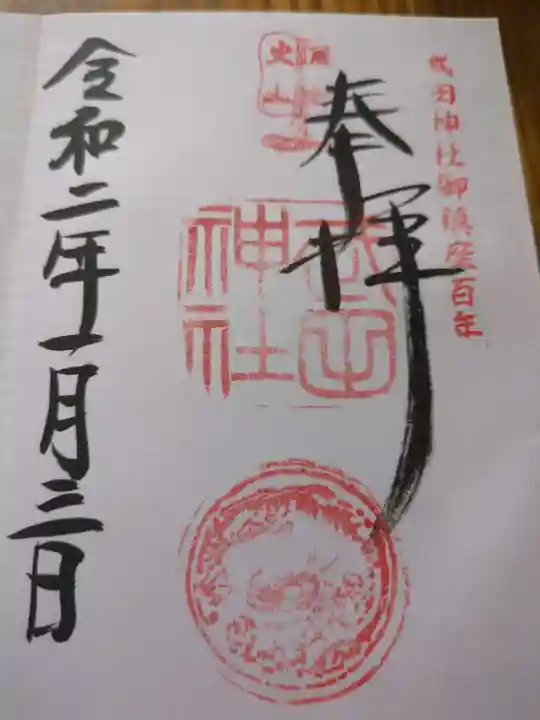 武田神社御鎮座百年
奉拝
武田
神社
令和二年一月三日